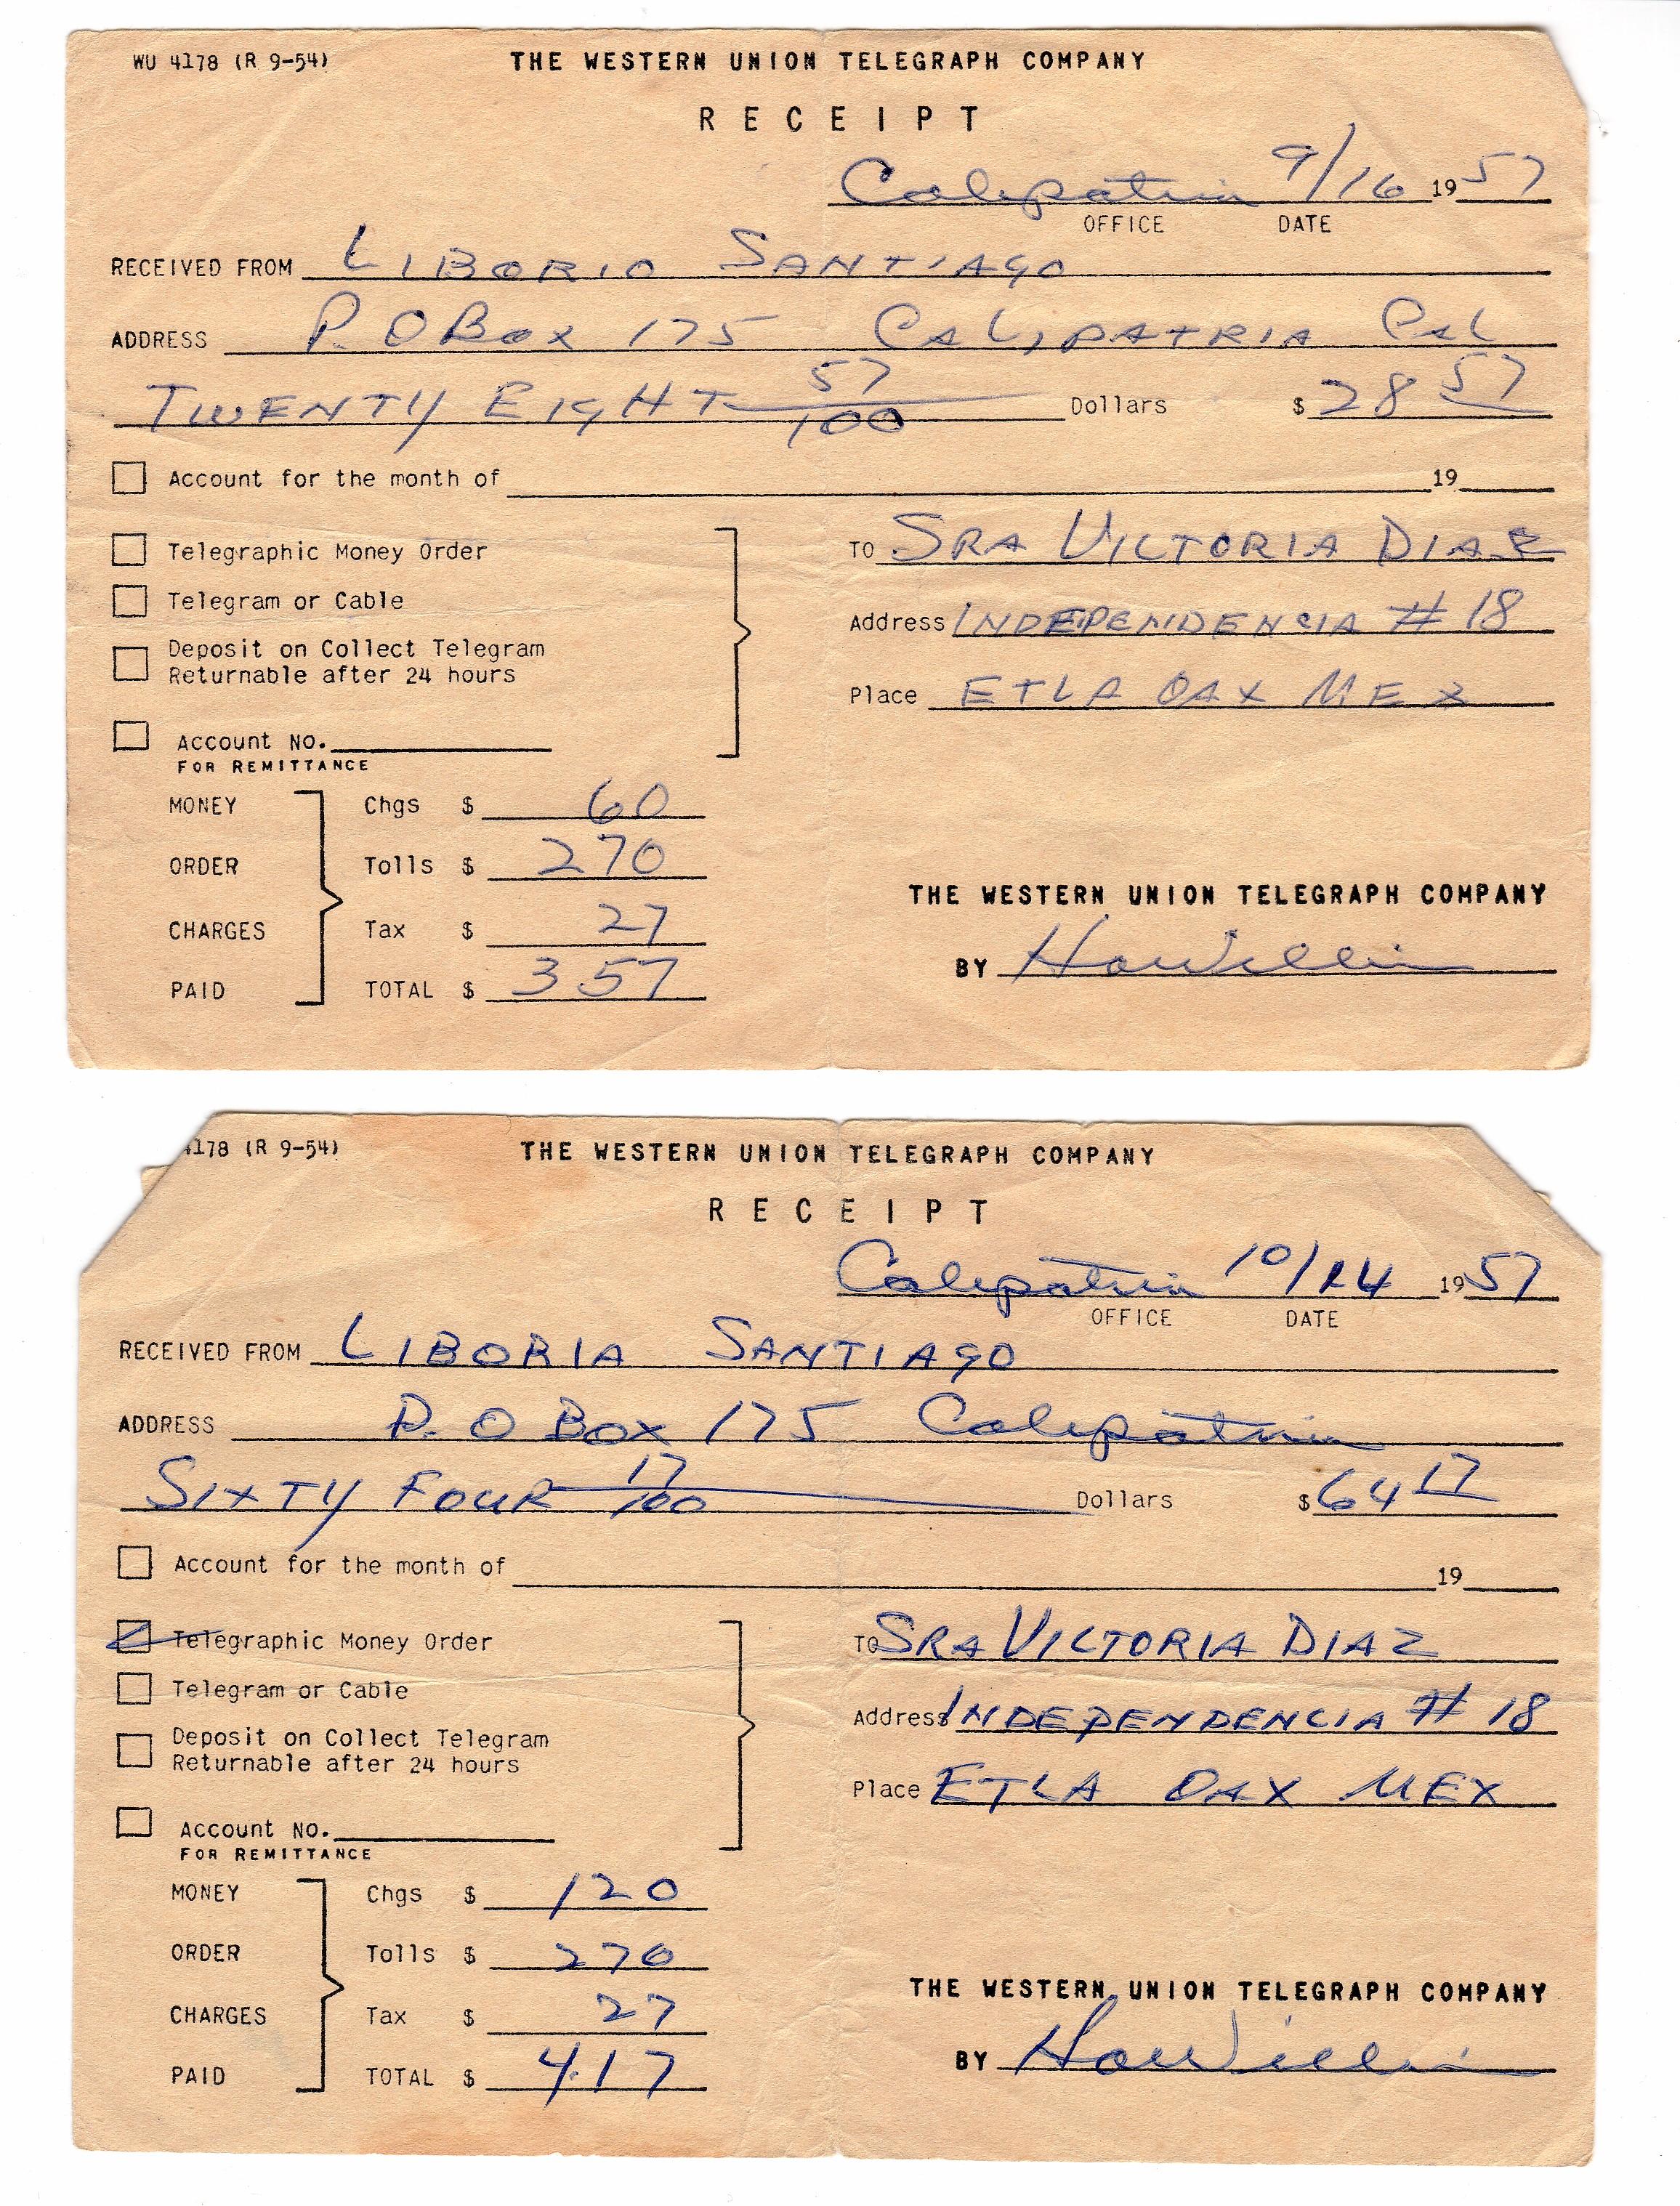 WU 4178 (R 9-54) THE WESTERN UNION TELEGRAPH COMPANY
RECEIPT
Calipatria 9/16 1957
OFFICE DATE
RECEIVED FROM LIBORIO SANTIAGO
ADDRESS P.O Box 175 CALIPATRIA CAL
TWENTY EIGHT 57/100 Dollars $ 28 57
Account for the month of 19
Telegraphic Money Order
Telegram or Cable
Deposit on Collect Telegram
Returnable after 24 hours
Account No.
FOR REMITTANCE
TO SRA VICTORIA DIAZ
Address INDEPENDENCIA # 18
Place ETLA OAX MEX
MONEY Chgs $ 60
ORDER Tolls $ 270
CHARGES Tax $ 27
PAID TOTAL $ 357
THE WESTERN UNION TELEGRAPH COMPANY
BY
4178 (R 9-54) THE WESTERN UNION TELEGRAPH COMPANY
RECEIPT
Calipatria 10/24 1957
OFFICE DATE
RECEIVED FROM LIBORIA SANTIAGO
ADDRESS P.O BOX 175 Calipatria
SIXTY FOUR 17/100 Dollars $ 64 17
Account for the month of 19
Telegraphic Money Order
Telegram or Cable
Deposit on Collect Telegram
Returnable after 24 hours
Account No.
FOR REMITTANCE
TO SRA VICTORIA DIAZ
Address INDEPENDENCIA # 18
Place ETLA OAX MEX
MONEY Chgs $ 120
ORDER Tolls $ 270
CHARGES Tax $ 27
PAID TOTAL $ 4.17
THE WESTERN UNION TELEGRAPH COMPANY
BY